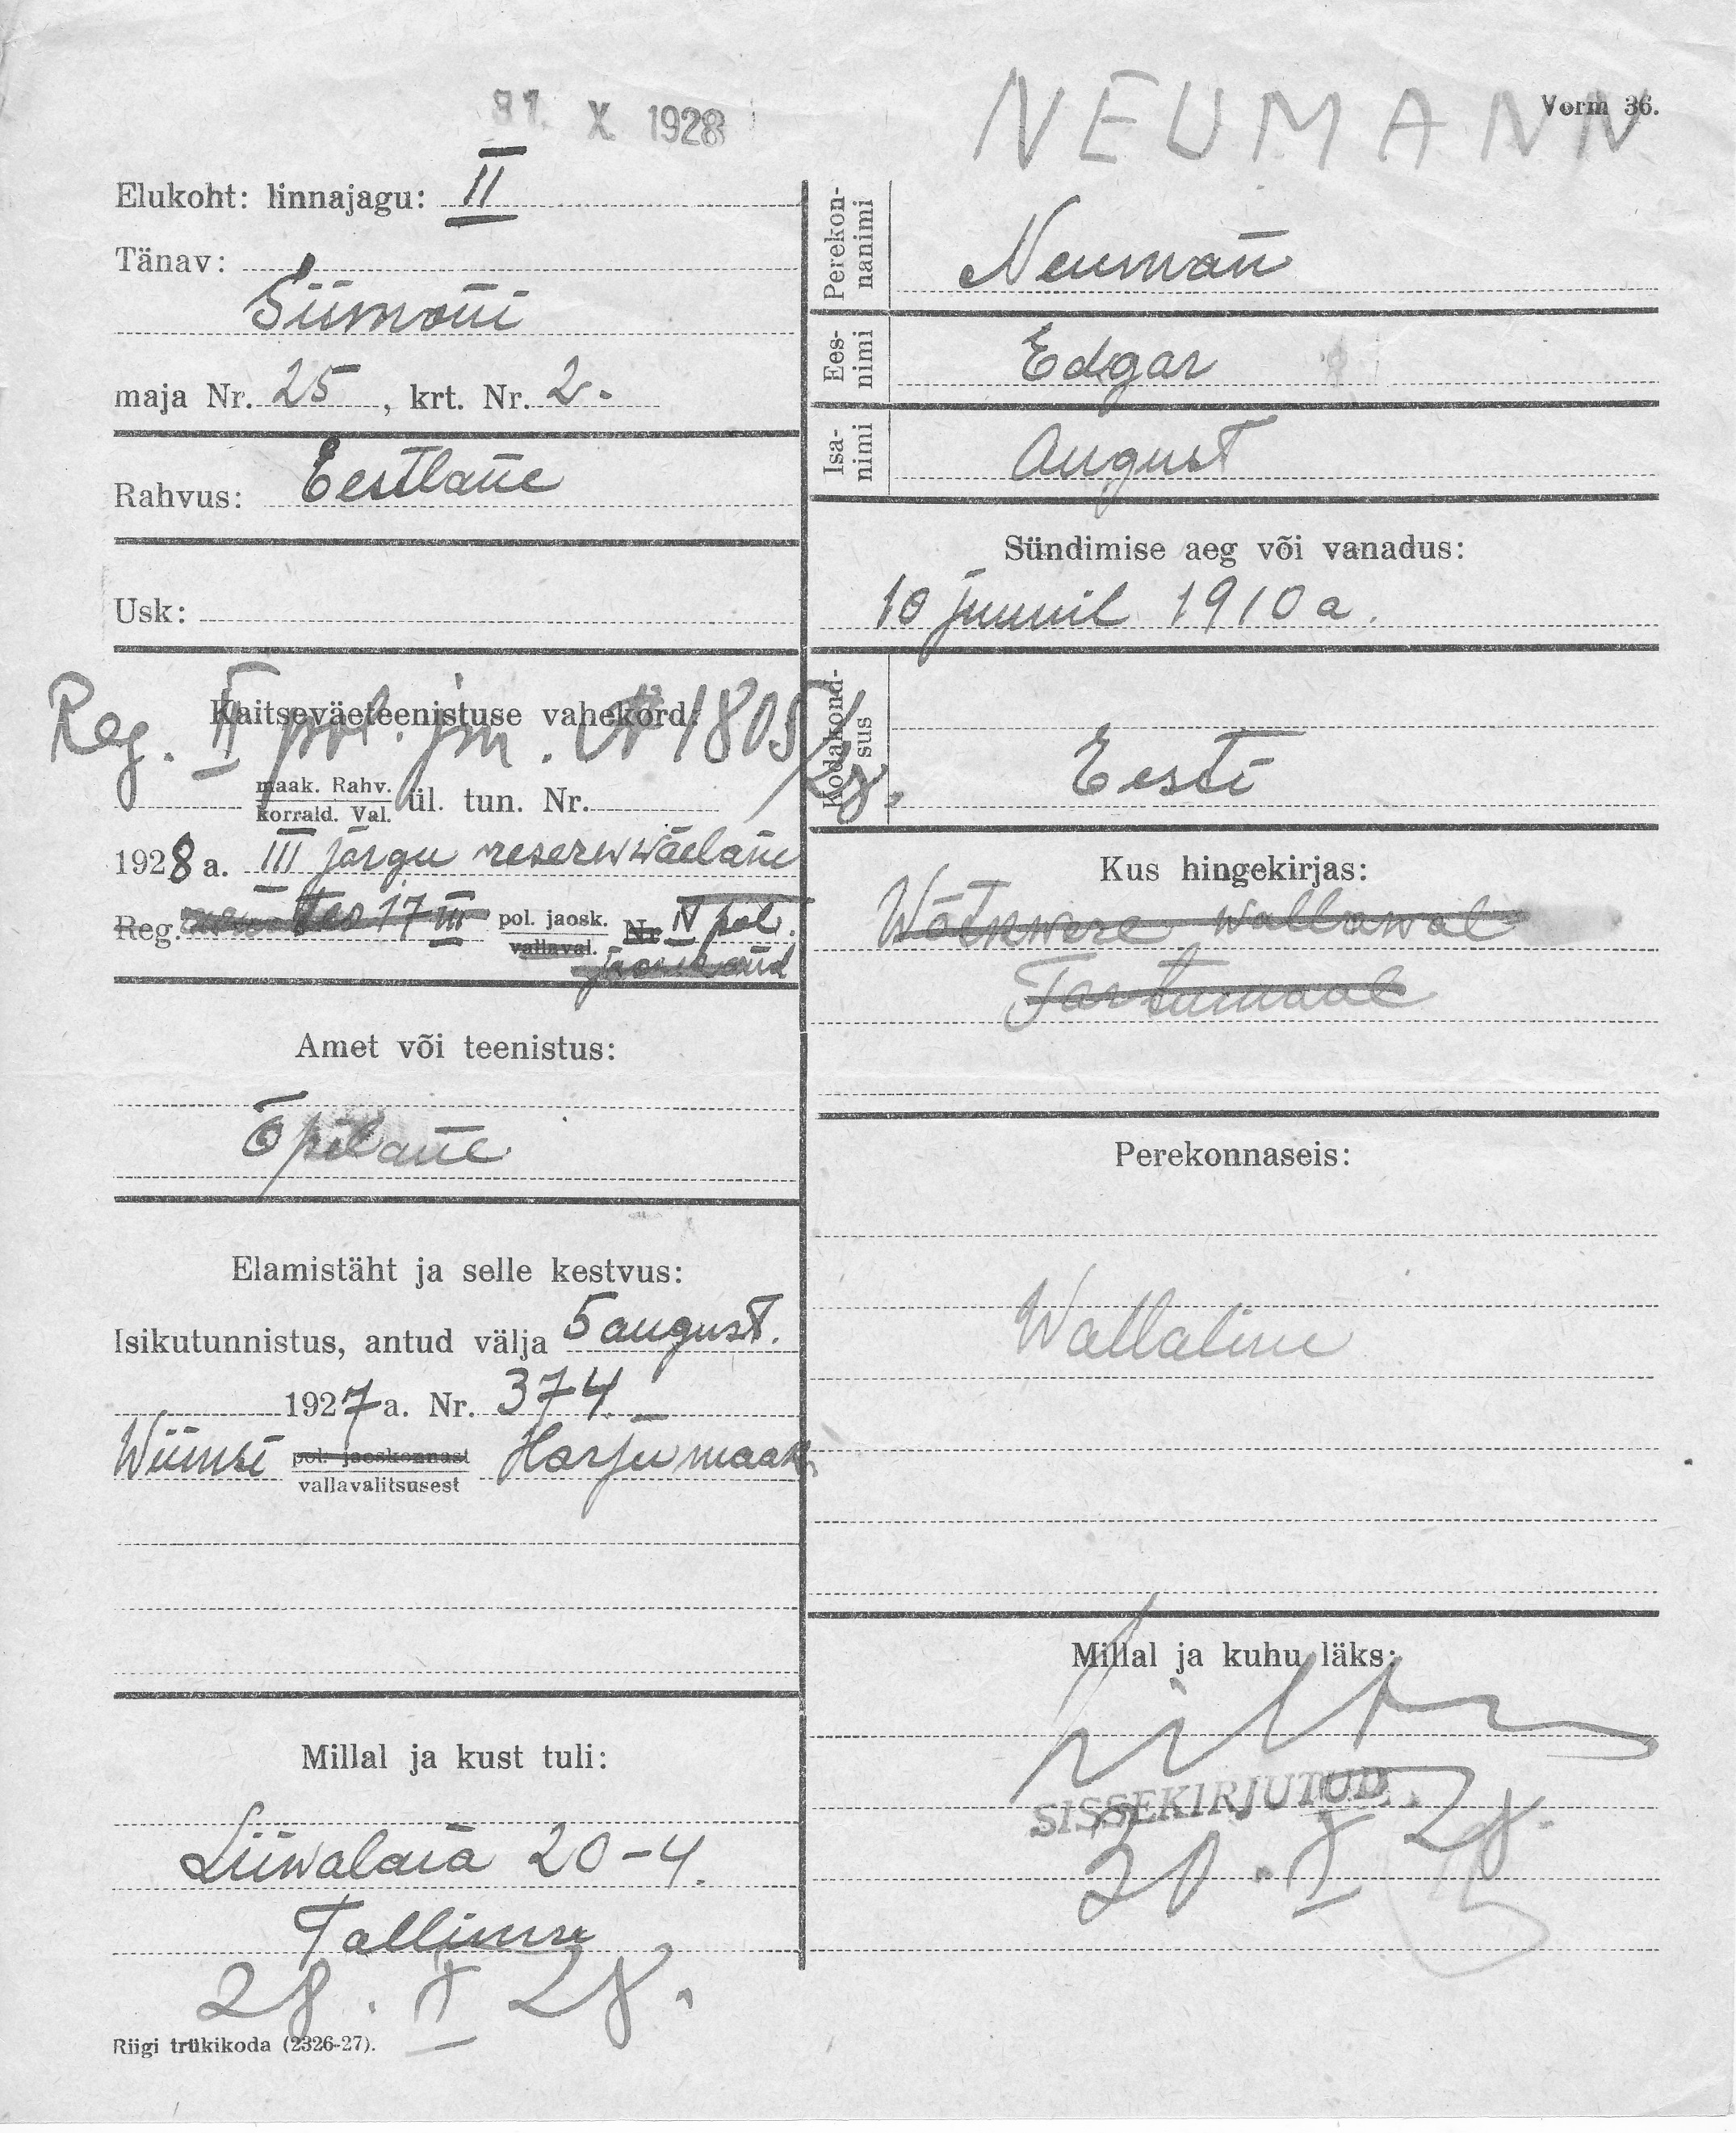 31. X 1928
Elukoht: linnajagu: II
Tänav:
Siimoni
maja Nr. 25, krt. Nr. 2.
Rahvus: Eestlane
Usk:
Kaitseväeteenistuse vahekord:
Reg. II pol. jsk. № 1805/28.
maak. Rahv.
korrald. Val. ül. tun. Nr.
1928 a. III järgu reservwäelane
Reg. 17 III pol. jaosk. Nr IV pol.
vallaval. jaoskond
Amet või teenistus:
Õpilane
Elamistäht ja selle kestvus:
Isikutunnistus, antud välja 5 august.
1927 a. Nr. 374
Wiimsi pol. jaoskonnast Harju maak.
vallavalitsusest
Millal ja kust tuli:
Liiwalaia 20-4.
Tallinn
28. X 28.
Riigi trükikoda (2326-27).
NEUMANN
Vorm 36.
Perekonnanimi
Neumann
Eesnimi
Edgar
Isanimi
August
Sündimise aeg või vanadus:
10 juunil 1910 a.
Kodakondsus
Eesti
Kus hingekirjas:
Wõtikwere wallawal
Tartumaal
Perekonnaseis:
Wallaline
Millal ja kuhu läks:
SISSEKIRJUTUD
30. X 28.